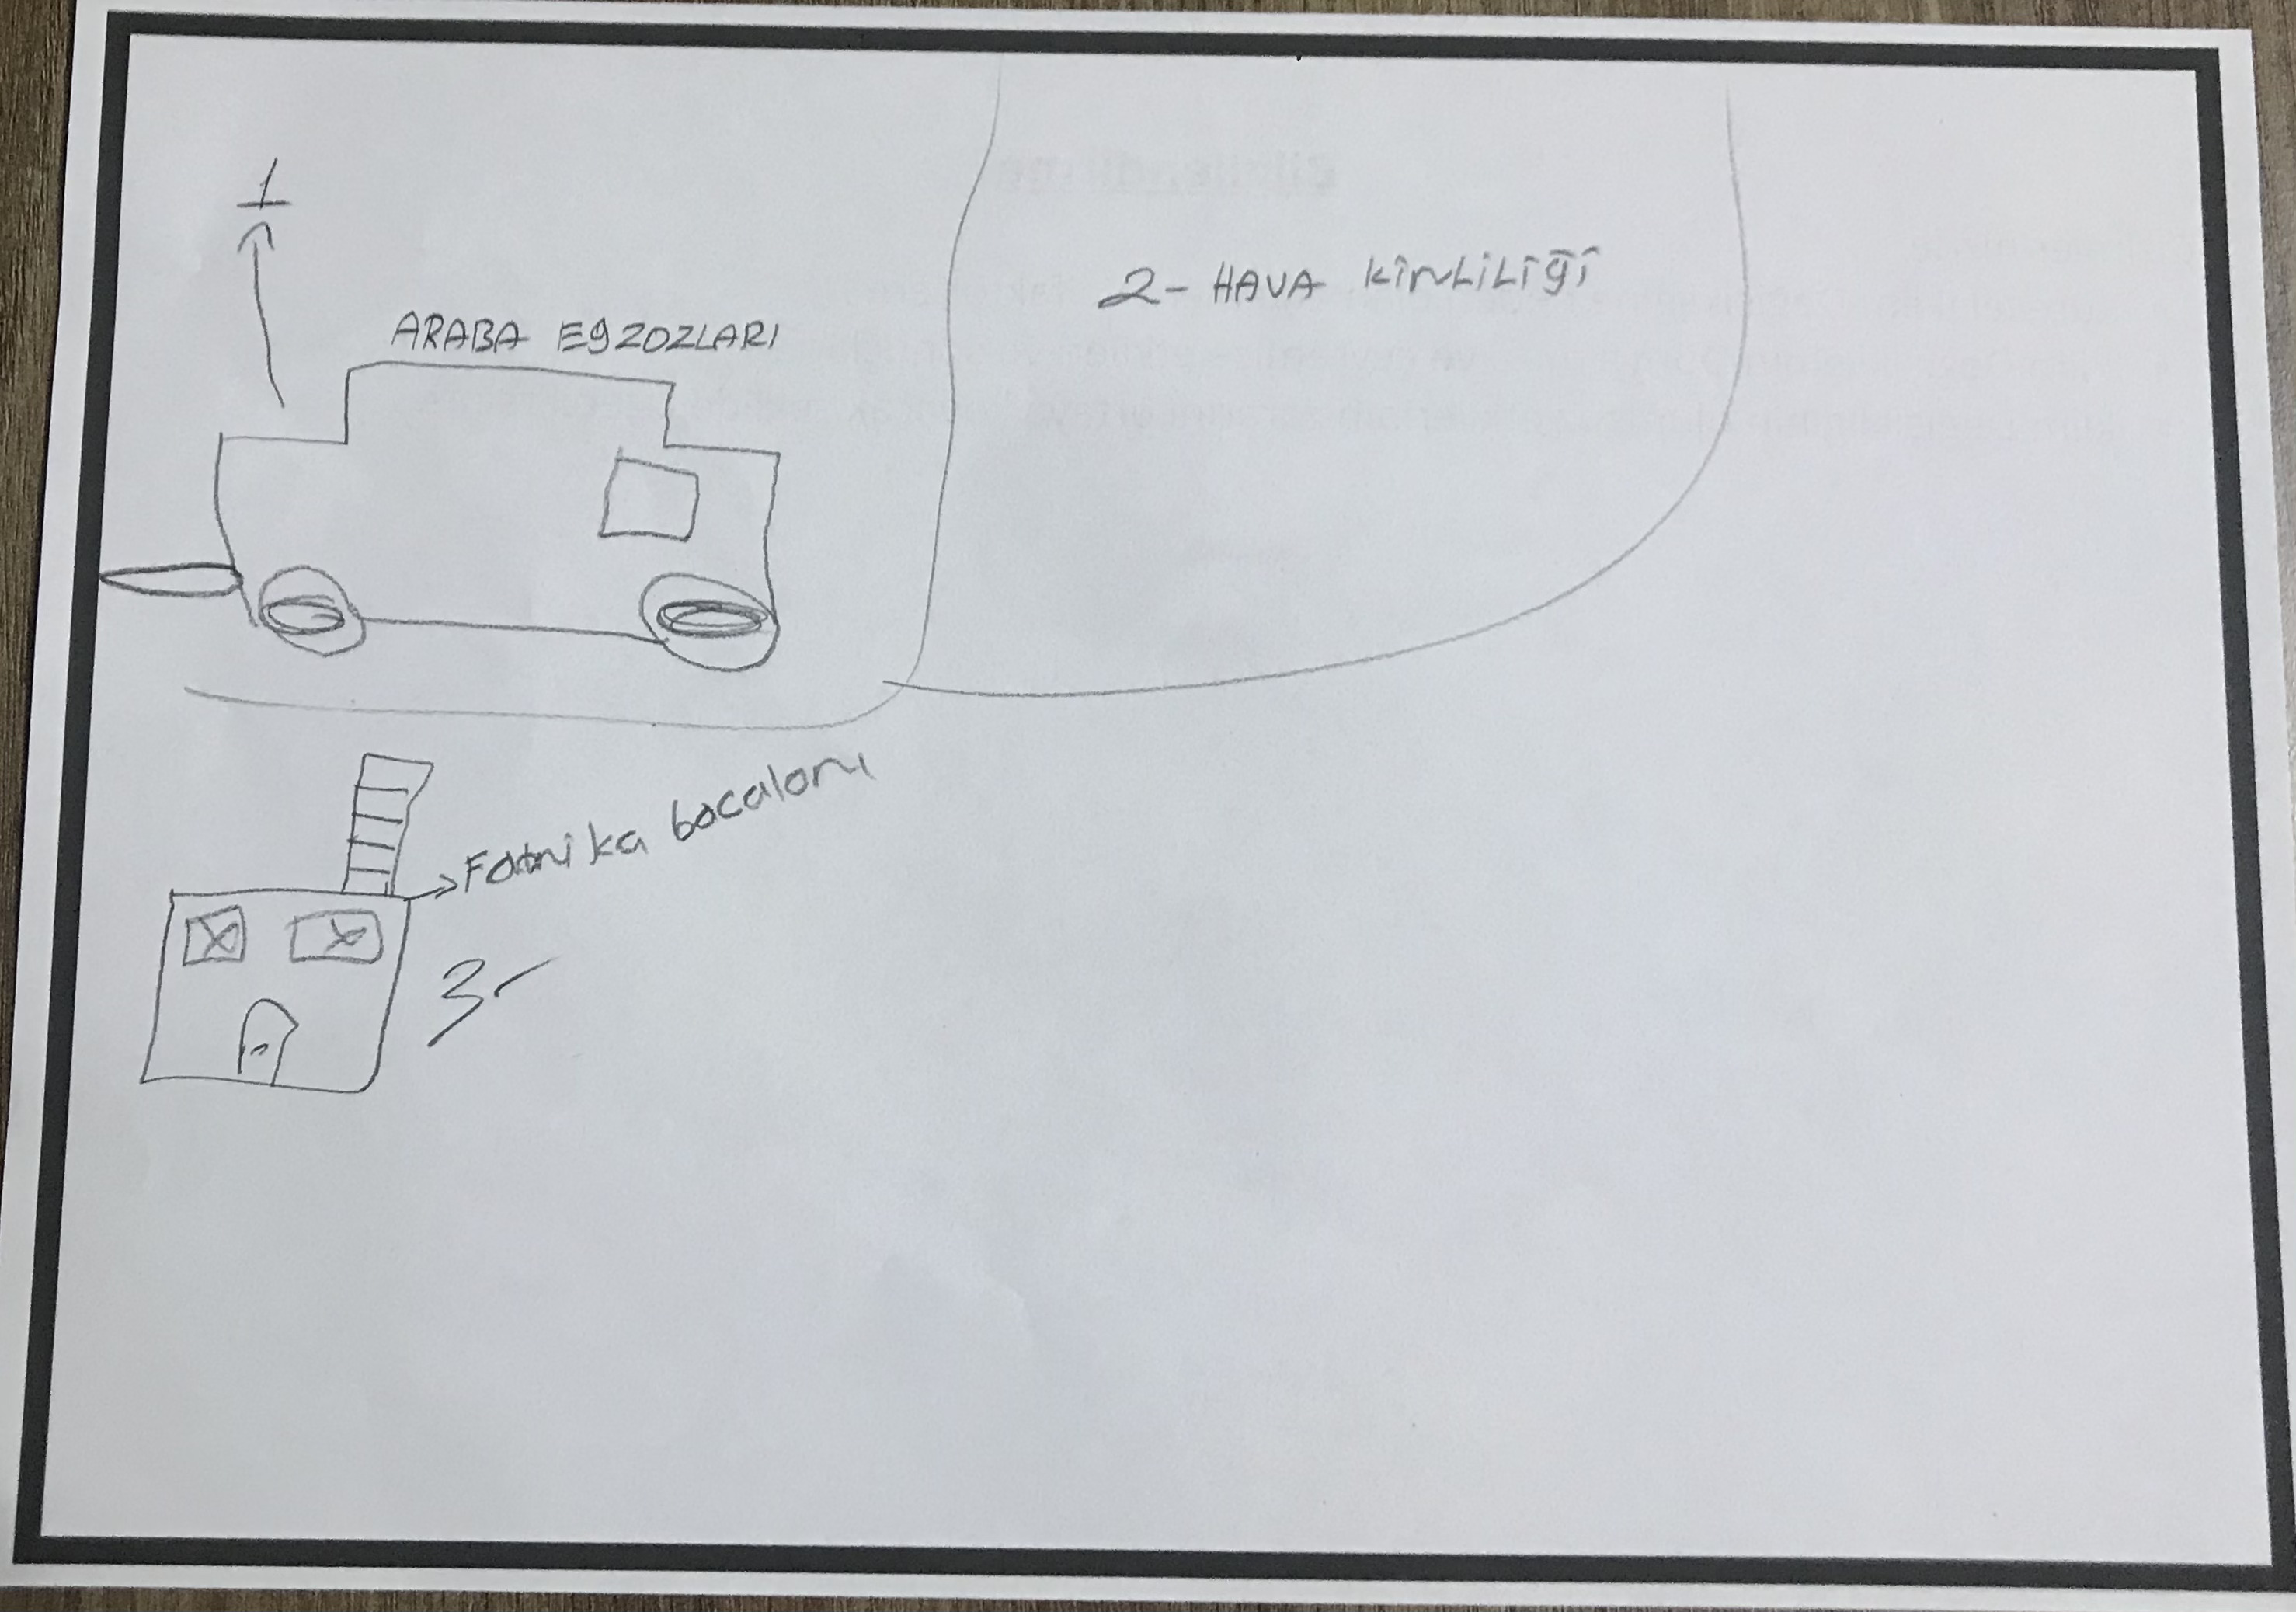 1
ARABA EGZOZLARI
2- HAVA KİRLİLİĞİ
Fabrika bacaları
3-